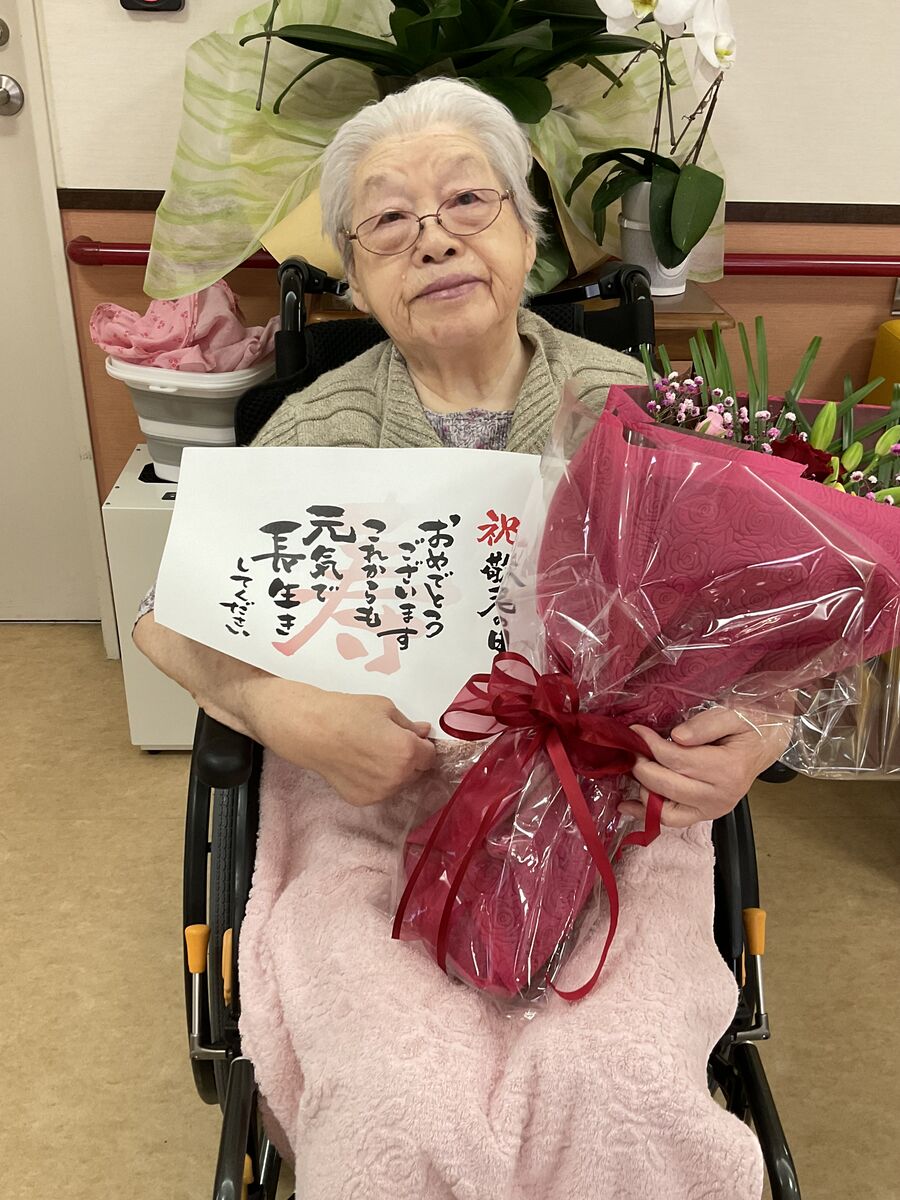 祝 敬老の日
おめでとう
ございます
これからも
元気で
長生き
してください
寿